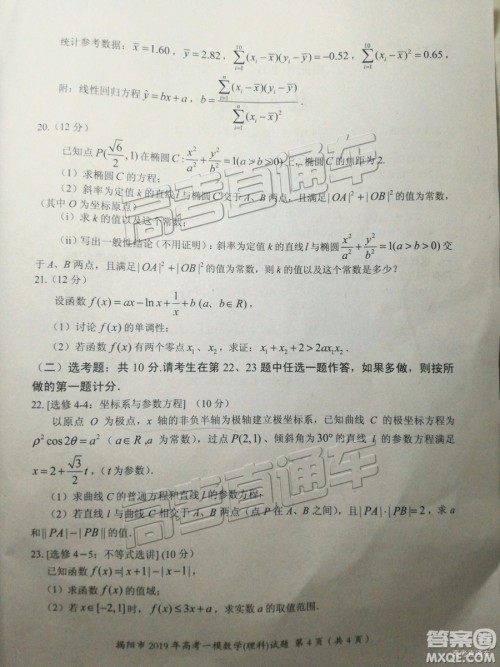 统计参考数据：x̄=1.60，ȳ=2.82，∑_{i=1}^{10}(x_i-x̄)(y_i-ȳ)=-0.52，∑_{i=1}^{10}(x_i-x̄)²=0.65，
附：线性回归方程 ŷ=bx+a，b=∑_{i=1}^{n}(x_i-x̄)(y_i-ȳ)/∑_{i=1}^{n}(x_i-x̄)².
20.（12 分）
已知点 P(√6/2,1) 在椭圆 C: x²/a²+y²/b²=1(a>b>0) 上，椭圆 C 的焦距为 2.
（1）求椭圆 C 的方程；
（2）斜率为定值 k 的直线 l 与椭圆 C 交于 A、B 两点，且满足 |OA|²+|OB|² 的值为常数，
（其中 O 为坐标原点）
（i）求 k 的值以及这个常数；
（ii）写出一般性结论（不用证明）：斜率为定值 k 的直线 l 与椭圆 x²/a²+y²/b²=1(a>b>0) 交
于 A、B 两点，且满足 |OA|²+|OB|² 的值为常数，则 k 的值以及这个常数是多少？
21.（12 分）
设函数 f(x)=ax-ln x+1/x+b (a、b∈R)，
（1）讨论 f(x) 的单调性；
（2）若函数 f(x) 有两个零点 x₁、x₂，求证：x₁+x₂+2>2ax₁x₂.
（二）选考题：共 10 分.请考生在第 22、23 题中任选一题作答，如果多做，则按所
做的第一题计分．
22. [选修 4-4：坐标系与参数方程]（10 分）
以原点 O 为极点，x 轴的非负半轴为极轴建立极坐标系，已知曲线 C 的极坐标方程为
ρ²cos2θ=a²（a∈R,a 为常数），过点 P(2,1)、倾斜角为 30° 的直线 l 的参数方程满足
x=2+(√3/2)t，（t 为参数）.
（1）求曲线 C 的普通方程和直线 l 的参数方程；
（2）若直线 l 与曲线 C 相交于 A、B 两点（点 P 在 A、B 之间），且 |PA|·|PB|=2，求 a
和 ||PA|-|PB|| 的值.
23. [选修 4－5：不等式选讲] (10 分)
已知函数 f(x)=|x+1|-|x-1|，
（1）求函数 f(x) 的值域；
（2）若 x∈[-2,1] 时，f(x)≤3x+a，求实数 a 的取值范围.
揭阳市 2019 年高考一模数学(理科)试题 第 4 页（共 4 页）
高考直通车
高考直通车